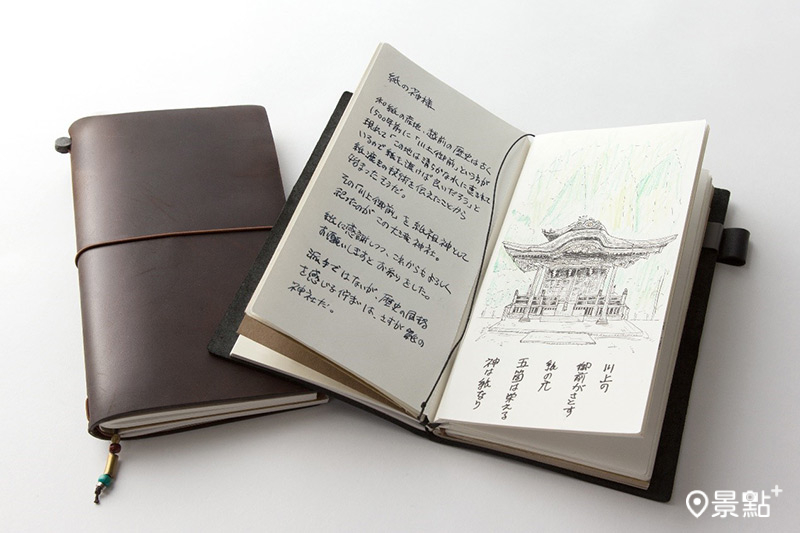 紙の神様
和紙の産地、越前の歴史は古く
1500年前に「川上御前」という方が
現れて「この地は清らかな水に恵まれて
いるので紙を漉けば良いだろう」と
紙漉きの技術を伝えたことから
始まったそうだ。
その「川上御前」を紙祖神として
祀ったのがこの大瀧神社。
紙に感謝しつつ、これからもよろしく
お願いしますとお参りをした。
派手ではないが、歴史の風格
を感じる佇まいは、さすが紙の
神社だ。
川上の
御前がさとす
紙の元
五箇は栄える
神は紙なり
景點+